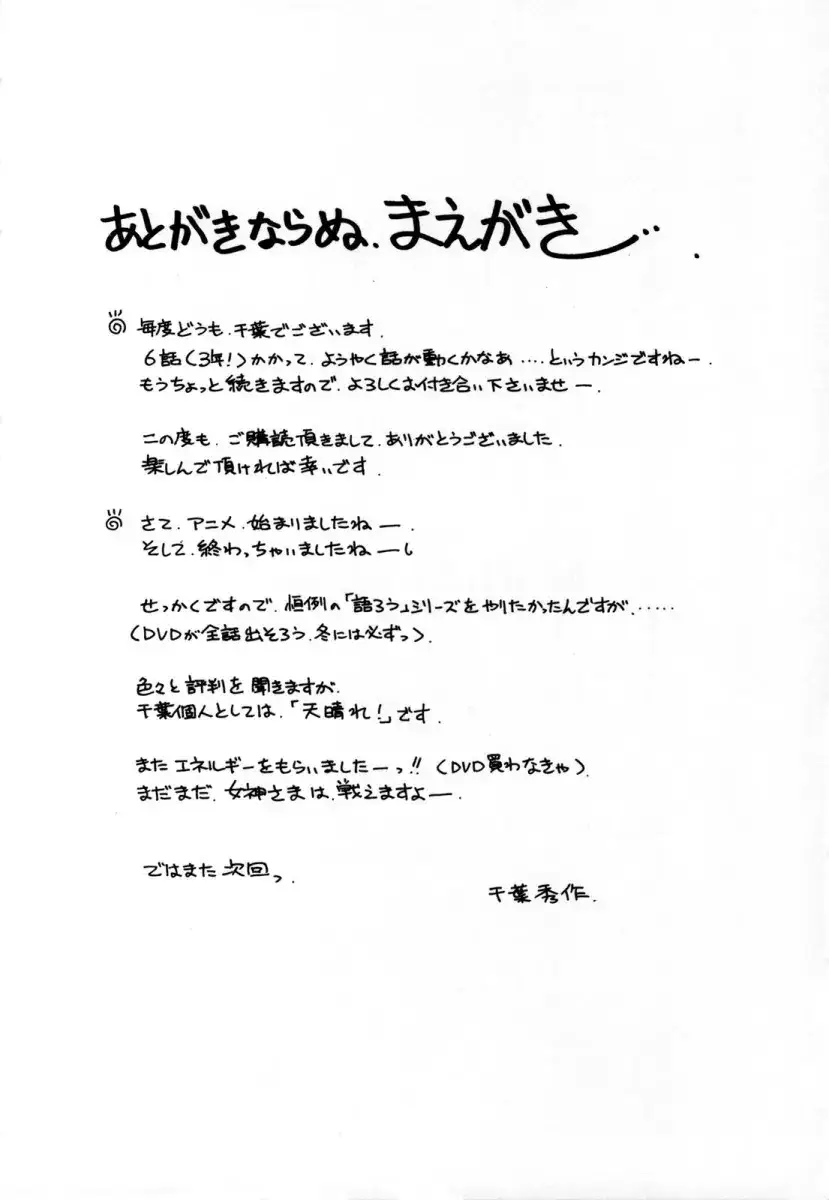 あとがきならぬ、まえがき‥.
毎度どうも、千葉でございます.
6話(3年!)かかって、ようやく話が動くかなあ‥‥というカンジですねー.
もうちょっと続きますので、よろしくお付き合い下さいませー.
この度も、ご購読頂きまして、ありがとうございました.
楽しんで頂ければ幸いです.
さて、アニメ、始まりましたねー.
そして、終わっちゃいましたねー.
せっかくですので、恒例の「語ろう」シリーズをやりたかったんですが、‥‥‥
(DVDが全話出そろう、冬には必ずっ).
色々と評判を聞きますが、
千葉個人としては、「天晴れ!」です.
またエネルギーをもらいましたーっ!!(DVD買わなきゃ).
まだまだ、女神さまは、戦えますよー.
ではまた次回っ.
千葉秀作.